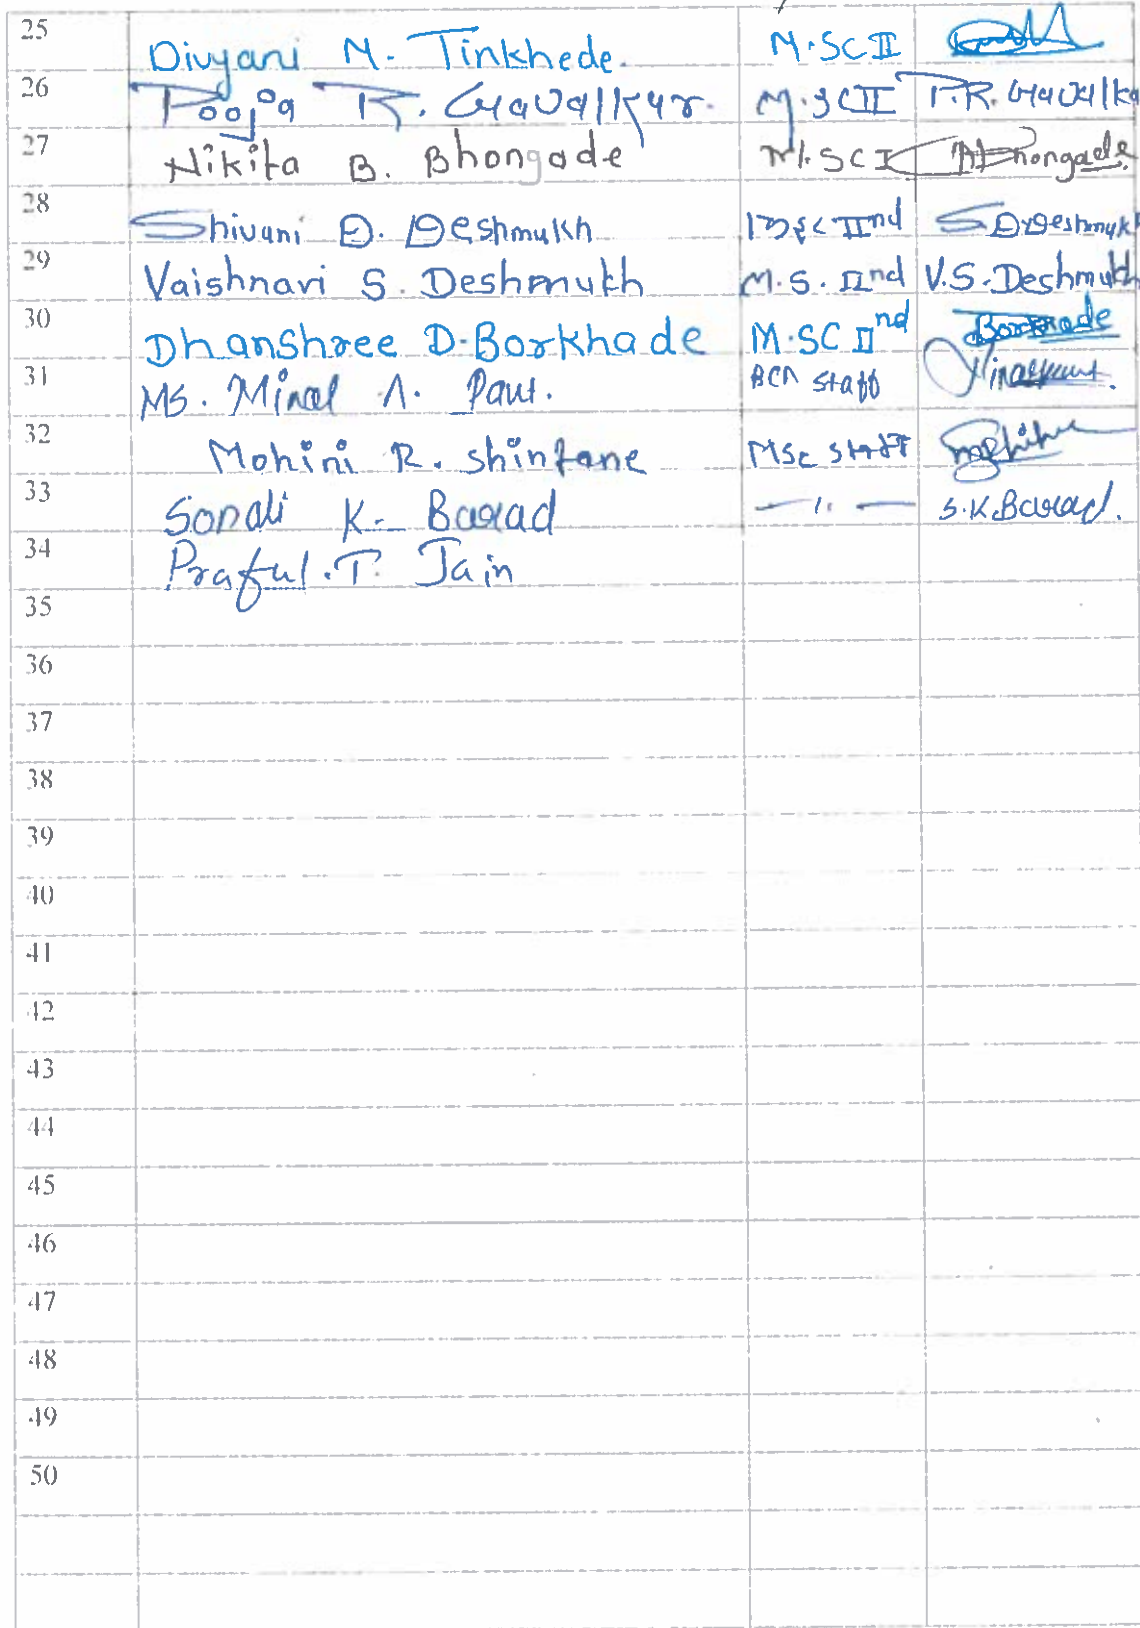 25 Divyani M. Tinkhede. M.SC II
26 Pooja R. Gavalkar. M.SC II P.R. Gavalka
27 Nikita B. Bhongade M.SC I Bhongade
28 Shivani D. Deshmukh IInd S D Deshmukh
29 Vaishnavi S. Deshmukh M.S. IInd V.S. Deshmukh
30 Dhanshree D. Borkhade M.SC IInd Borkhade
31 Ms. Minal A. staff
32 Mohini R. shintane MSc staff
33 Sonali K. Barad — 11 — S.K.Barad.
34 Praful .T. Jain
35
36
37
38
39
40
41
42
43
44
45
46
47
48
49
50